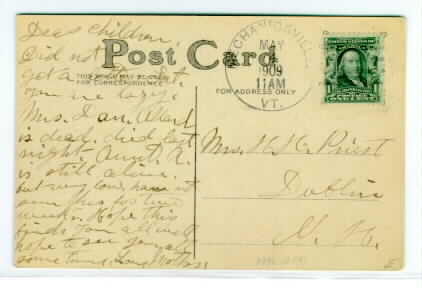 Dear Children,
Did not
Post Card
get a
THIS SPACE MAY BE USED
FOR CORRESPONDENCE
FOR ADDRESS ONLY
MAY
1909
11AM
VT.
Mrs.
is dead, died last
night Aunt R.
is still alive.
but very low, have not
seen her for two
weeks. Hope this
finds you all well
hope to see you all
some time. Love
Mrs. H. K. Priest
Dublin
N. H.